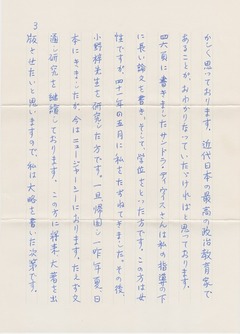 かしく思っております。近代日本の最高の政治教育家で
あることが、おわかりなっていたゞければと思っております。
四六頁に書きましたサンドラ・デイヴィスさんは私の指導の下
に長い論文を書き、そして、学位をとった方です。この方は女
性ですが、四十一年の五月に私をたずねてきました。その後、
小野梓先生を研究した方です。一旦帰国し、一昨年夏、日
本にきましたが、今はニュージャーシーにおります。たえず文
通し研究を継續しております。この方に将来、大著を出
版させたいと思いますので、私は大略を書いた次第です。
3